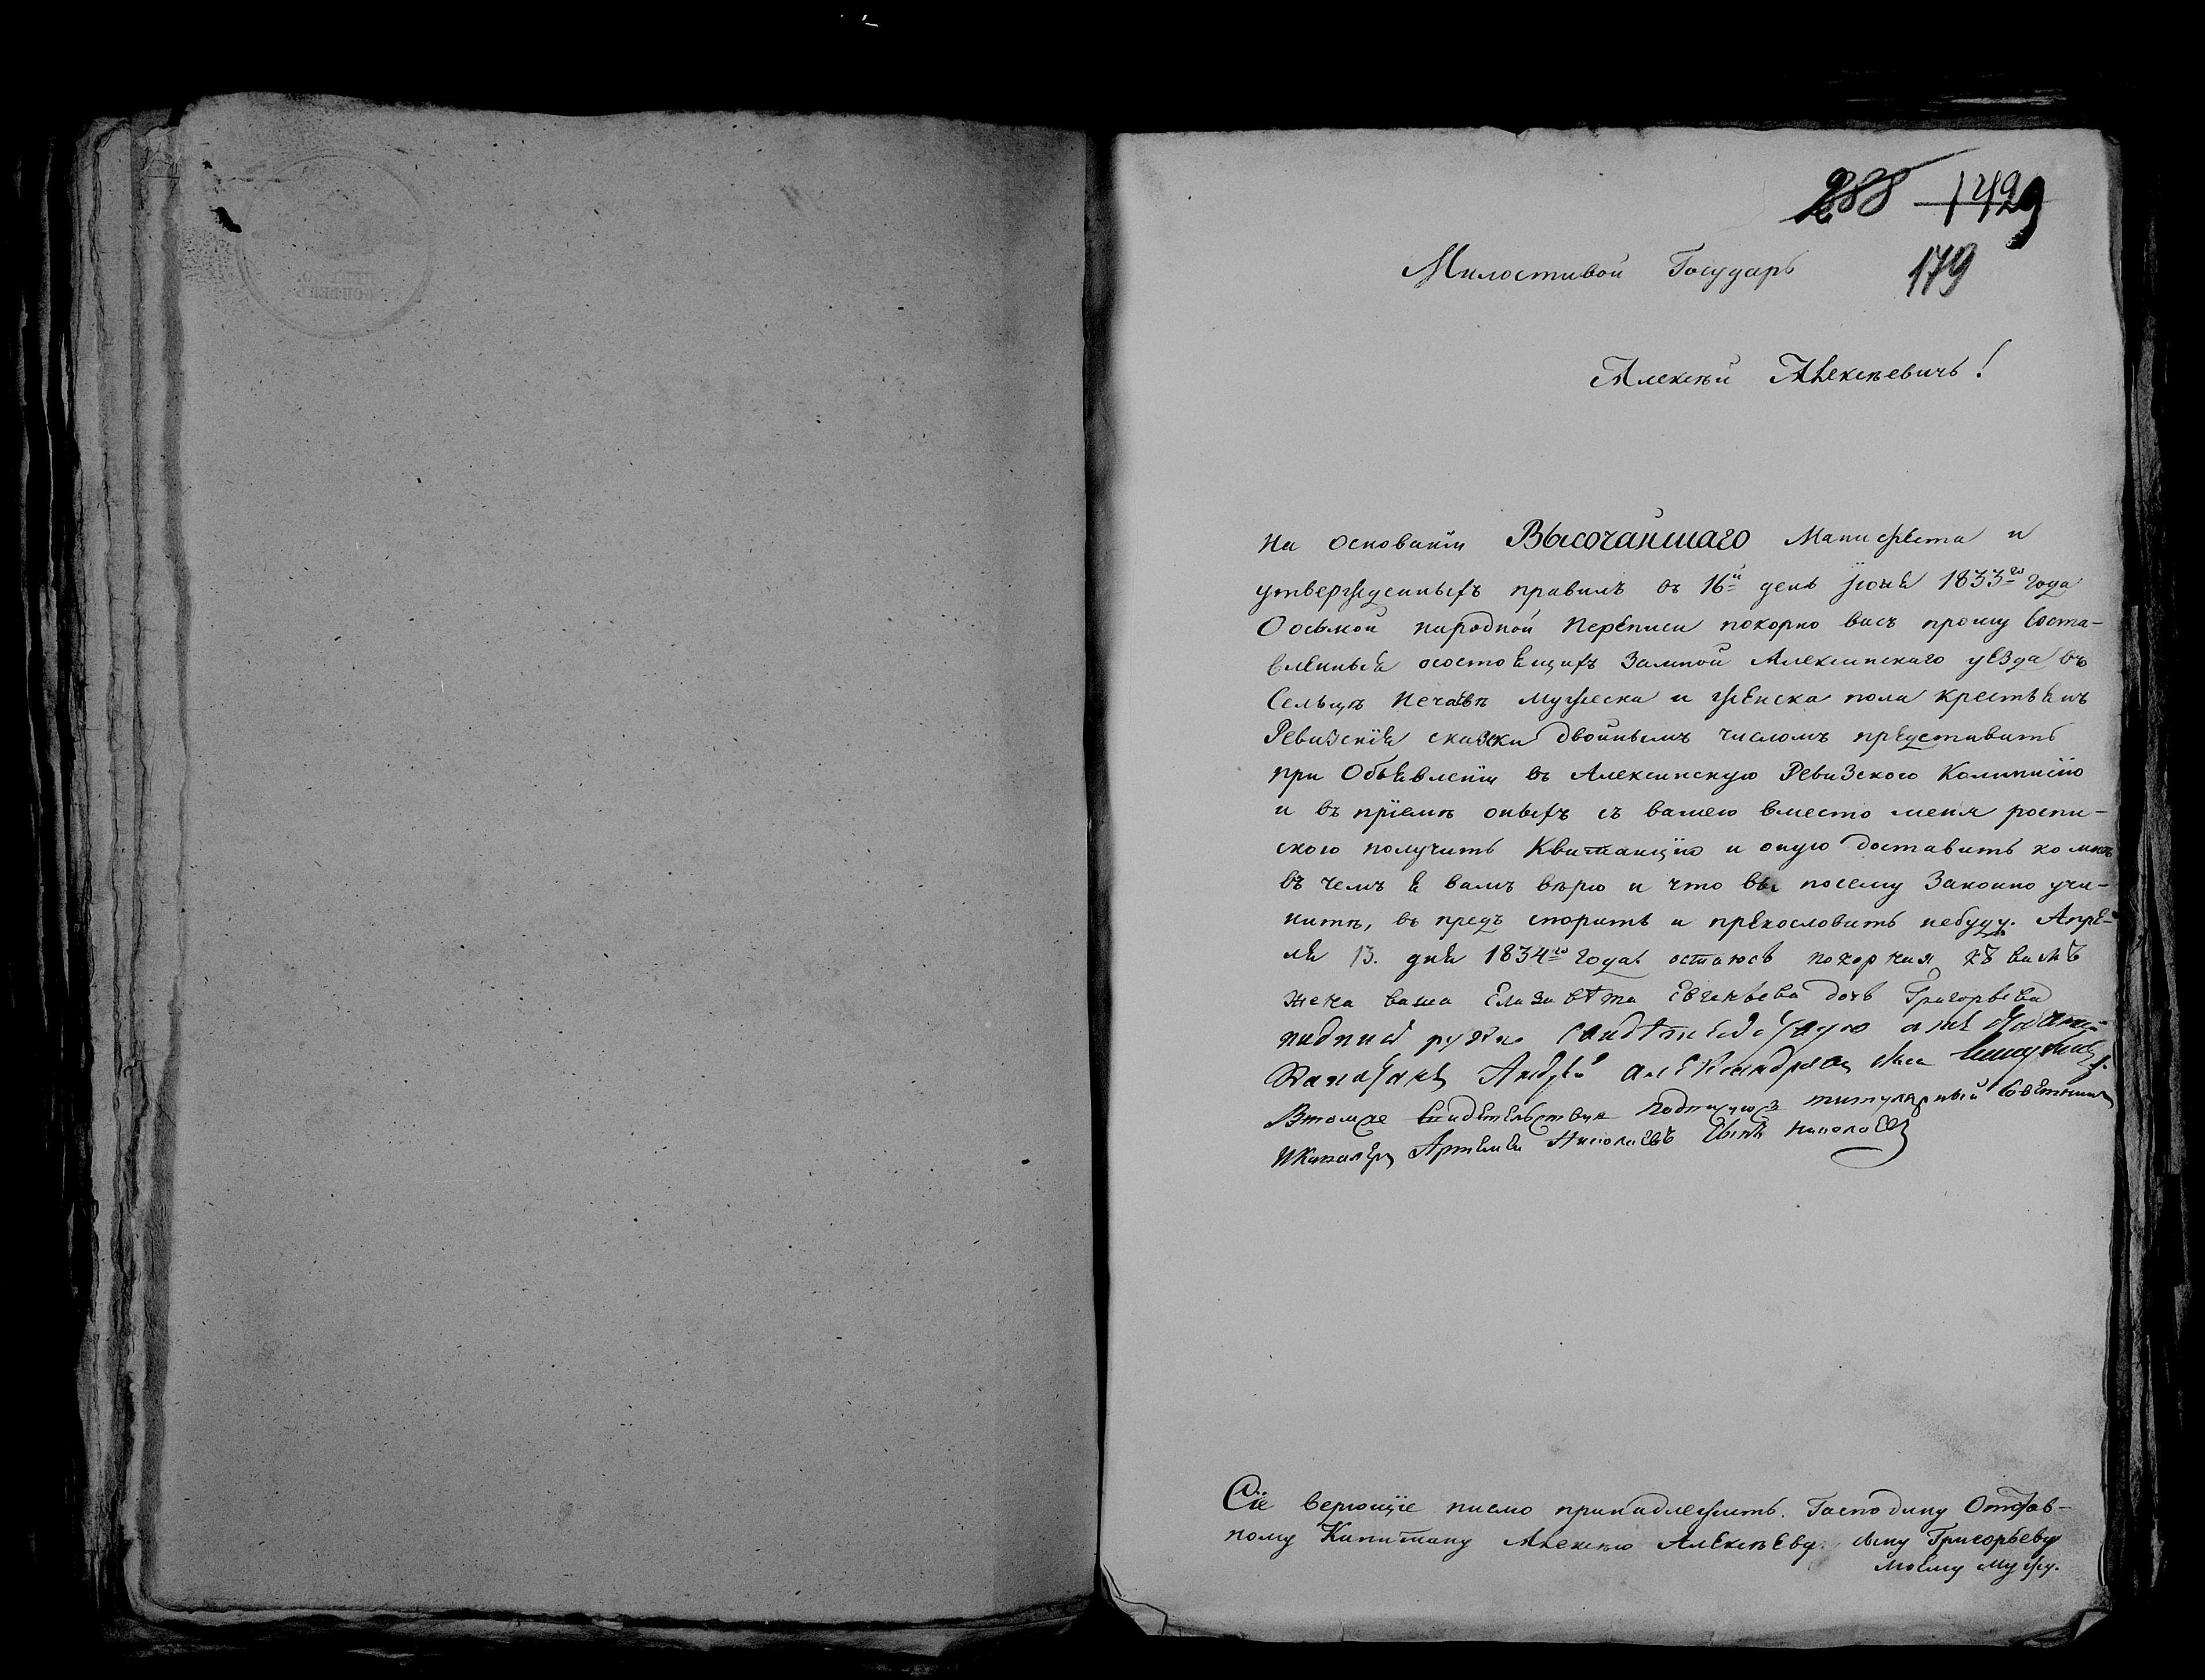 288 1429
179
Милостивой Государь
Алексѣй Алексѣевичь!
На основаніи Высочайшаго Манифеста и
утвержденныхъ правилъ въ 16й день Іюня 1833го года
О осьмой народной переписи покорно васъ прошу соста-
вленные осостоящихъ Замной Алексинскаго уезда въ
Сельцѣ Нечаевѣ мужеска и женска пола крестьянъ
Ревизскія сказки двойнымъ числомъ представить
при Объявленіи въ Алексинскую Ревизскою Коммисію
и въ пріемѣ оныхъ съ вашею вместо меня роспи-
скою получить Квитанцію и оную доставить ко мнѣ
въ чемъ я вамъ вѣрю и что вы посему Законно учи-
нитѣ, въ предъ спорить и прекословить небуду. Апре-
ля 13. дня 1834го года остаюсь покорная къ вамъ
жена ваша Елизавѣта Евгеньева дочь Григорьева
Андрей Александровъ сынъ
Втомже свидетельствуя подписуюсь титулярный Советникъ
Икавалеръ Артемей Николаевъ сынъ Николаевъ
Сіе верющіе писмо принадлежитъ. Господину Отстав-
ному Капитану Алексѣю Алексѣеву сыну Григорьеву
моему мужу.